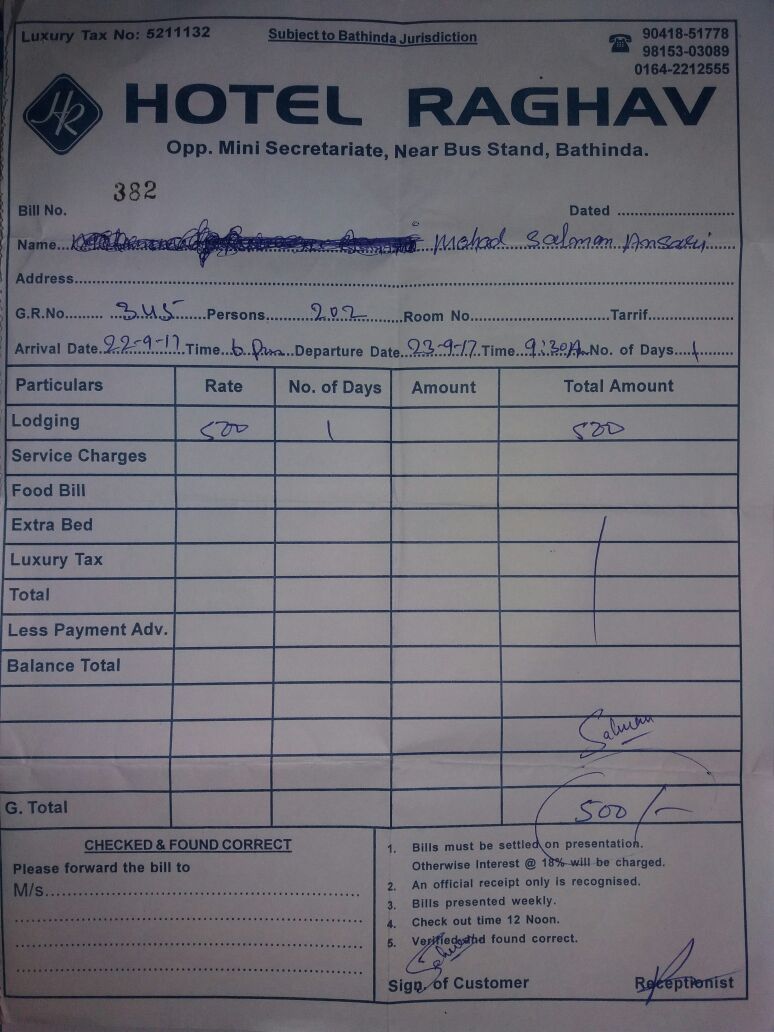 Luxury Tax No: 5211132 Subject to Bathinda Jurisdiction 90418-51778
98153-03089
0164-2212555
HR HOTEL RAGHAV
Opp. Mini Secretariate, Near Bus Stand, Bathinda.
382
Bill No. Dated
Name Mohad Salman Ansari
Address
G.R.No. 345 Persons 202 Room No. Tarrif
Arrival Date 22-9-17 Time 6 Pm Departure Date 23-9-17 Time 9:30 A No. of Days 1
Particulars Rate No. of Days Amount Total Amount
Lodging 500 1 500
Service Charges
Food Bill
Extra Bed
Luxury Tax
Total
Less Payment Adv.
Balance Total
Salman
G. Total 500/-
CHECKED & FOUND CORRECT
Please forward the bill to
M/s
1. Bills must be settled on presentation.
Otherwise Interest @ 18% will be charged.
2. An official receipt only is recognised.
3. Bills presented weekly.
4. Check out time 12 Noon.
5. Verified and found correct.
Salman
Sign. of Customer Receptionist